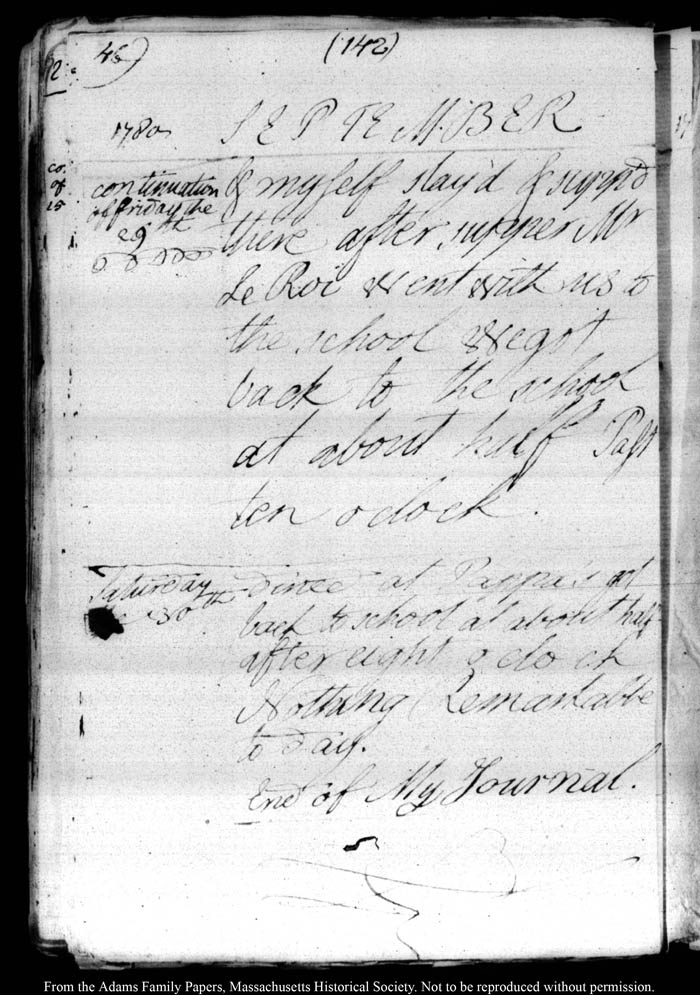 48) (142)
1780 SEPTEMBER
continuation
of friday the
29th
& myself stay'd & supp'd
there after supper Mr
Le Roi Went with us to
the school We got
back to the school
at about half Past
ten o clock.
Saturday
30th
Dined at Pappa's got
back to school at about half
after eight o clock
Nothing Remarkable
to Day.
End of My Journal.
From the Adams Family Papers, Massachusetts Historical Society. Not to be reproduced without permission.